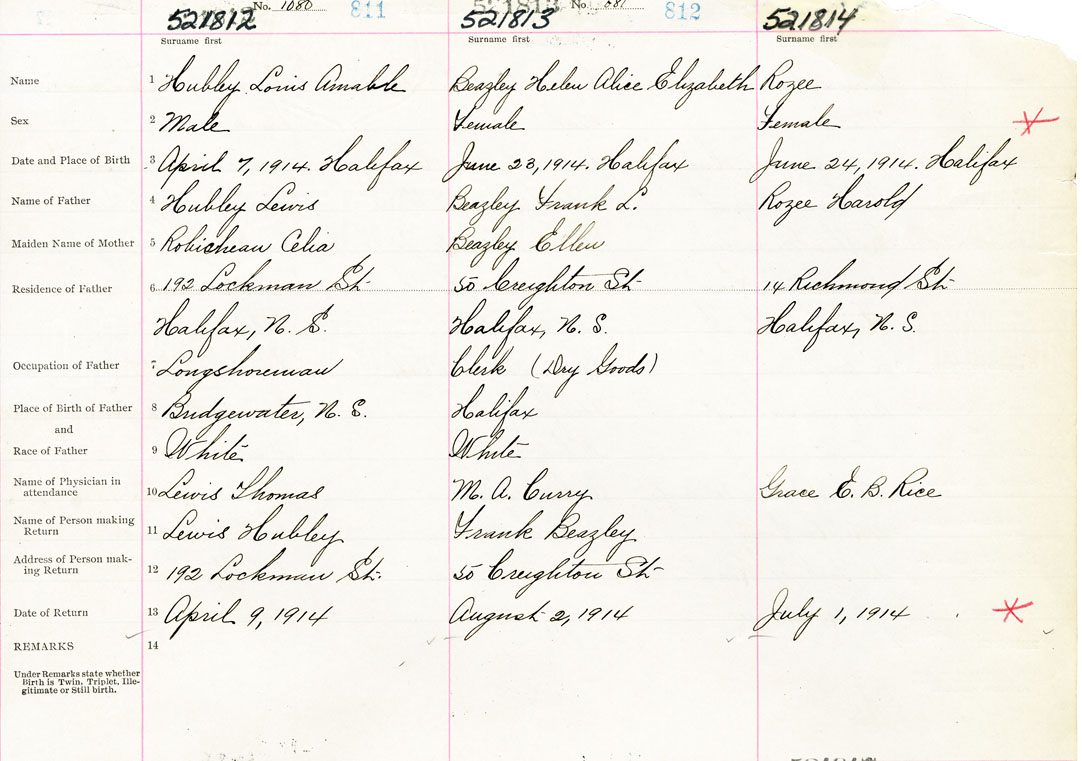 No. 1080 811 No 812
521812 521813 521814
Surname first Surname first Surname first
Name 1 Hubley Louis Amable Beazley Helen Alice Elizabeth Rozee
Sex 2 Male Female Female
Date and Place of Birth 3 April 7, 1914. Halifax June 23, 1914. Halifax June 24, 1914. Halifax
Name of Father 4 Hubley Lewis Beazley Frank L. Rozee Harold
Maiden Name of Mother 5 Robicheau Celia Beazley Ellen
Residence of Father 6 192 Lockman St. 50 Creighton St. 14 Richmond St.
Halifax, N. S. Halifax, N. S. Halifax, N. S.
Occupation of Father 7 Longshoreman Clerk (Dry Goods)
Place of Birth of Father 8 Bridgewater, N. S. Halifax
and
Race of Father 9 White White
Name of Physician in attendance 10 Lewis Thomas M. A. Curry Grace E. B. Rice
Name of Person making Return 11 Lewis Hubley Frank Beazley
Address of Person mak-ing Return 12 192 Lockman St. 50 Creighton St.
Date of Return 13 April 9, 1914 August 2, 1914 July 1, 1914
REMARKS 14
Under Remarks state whether
Birth is Twin, Triplet, Ille-
gitimate or Still birth.